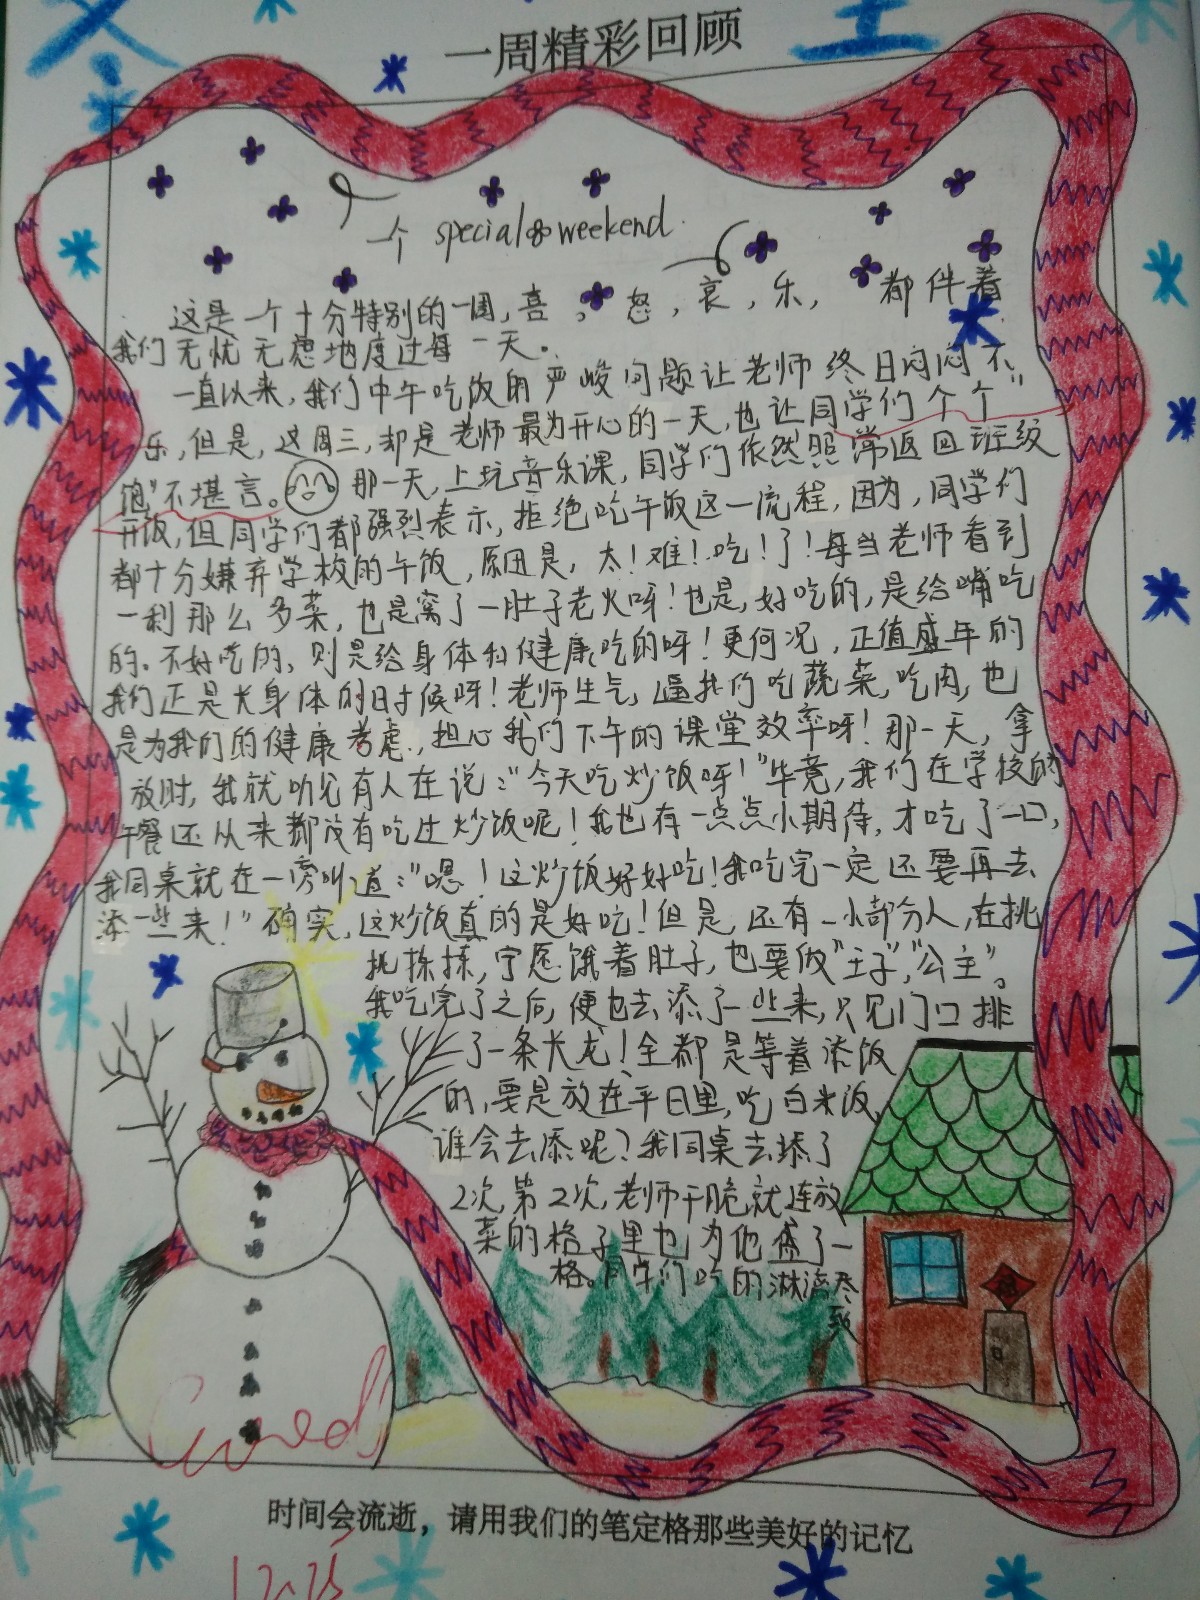 冬
一周精彩回顾
至
一个 special weekend
这是一个十分特别的一周,喜,怒,哀,乐,都伴着
我们无忧无虑地度过每一天。
一直以来,我们中午吃饭的严峻问题让老师终日闷闷不
乐,但是,这周三,却是老师最为开心的一天,也让同学们个个"
饱"不堪言。那一天,上玩音乐课,同学们依然照常返回班级
开饭,但同学们都强烈表示,拒绝吃午饭这一流程,因为,同学们
都十分嫌弃学校的午饭,原因是,太!难!吃!了!每当老师看到
一剩那么多菜,也是窝了一肚子老火呀!也是,好吃的,是给嘴吃
的。不好吃的,则是给身体和健康吃的呀!更何况,正值盛年的
我们正是长身体的时候呀!老师生气,逼我们吃蔬菜,吃肉,也
是为我们的健康考虑,担心我们下午的课堂效率呀!那一天,拿
放时,我就听见有人在说:"今天吃炒饭呀!"毕竟,我们在学校的
午餐还从来都没有吃过炒饭呢!我也有一点点小期待,才吃了一口,
我同桌就在一旁叫道:"嗯!这炒饭好好吃!我吃完一定还要再去
添一些来!"确实,这炒饭真的是好吃!但是,还有一小部分人,在挑
挑拣拣,宁愿饿着肚子,也要做"王子","公主"。
我吃完了之后,便也去添了一些来,只见门口排
了一条长龙!全都是等着添饭
的,要是放在平日里,吃白米饭,
谁会去添呢?我同桌去添了
2次,第2次,老师干脆就连放
菜的格子里也为他盛了一
格。同学们吃的淋漓尽
致
Good!
时间会流逝,请用我们的笔定格那些美好的记忆
12.25